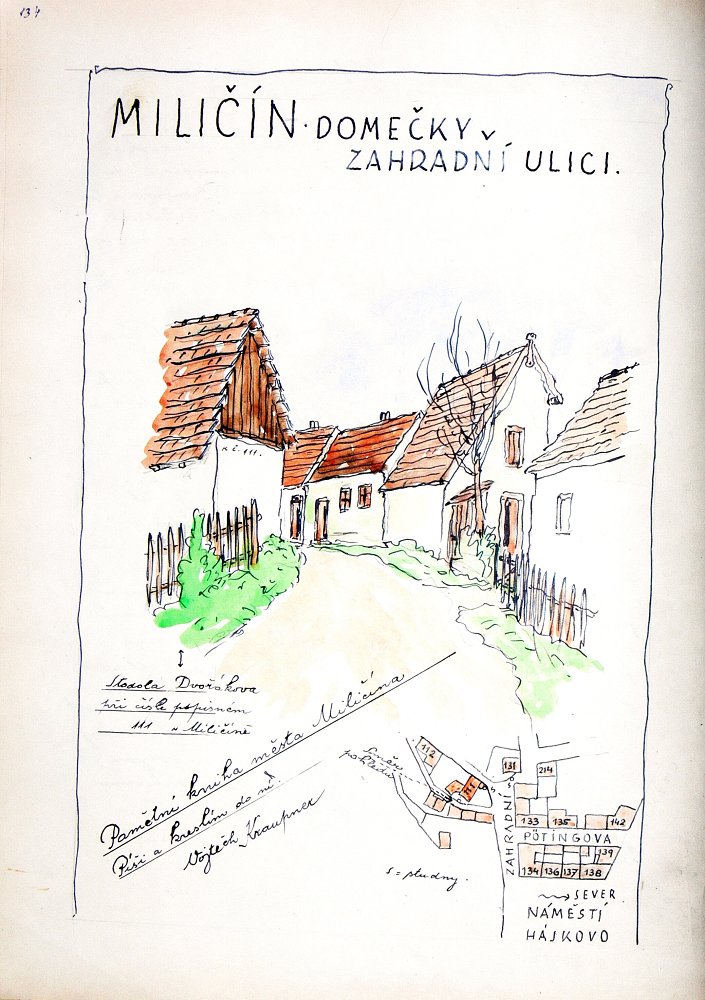 134
MILIČÍN · DOMEČKY V
ZAHRADNÍ ULICI.
č. 111.
Stodola Dvořákova
při čísle popisném
111 v Miličíně
Pamětní kniha města Miličína
Píši a kreslím do ní:
Vojtěch Kraupner
Směr
pohledu
112
111
131
214
ZAHRADNÍ
133 135 142
PÖTINGOVA
139
134 136 137 138
S = studny.
SEVER
NÁMĚSTÍ
HÁSKOVO